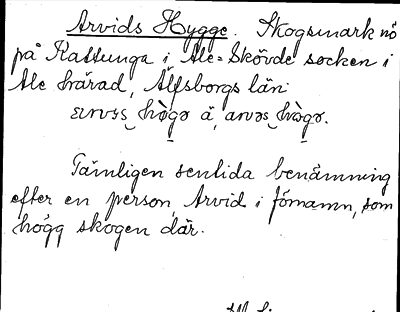 Arvids Hygge. Skogsmark nö
på Kattunga i Ale-Skövde socken i
Ale härad, Älfsborgs län.
arvəs hògə ä, arvəs hògə.
Tämligen sentida benämning
efter en person, Arvid i förnamn, som
högg skogen där.